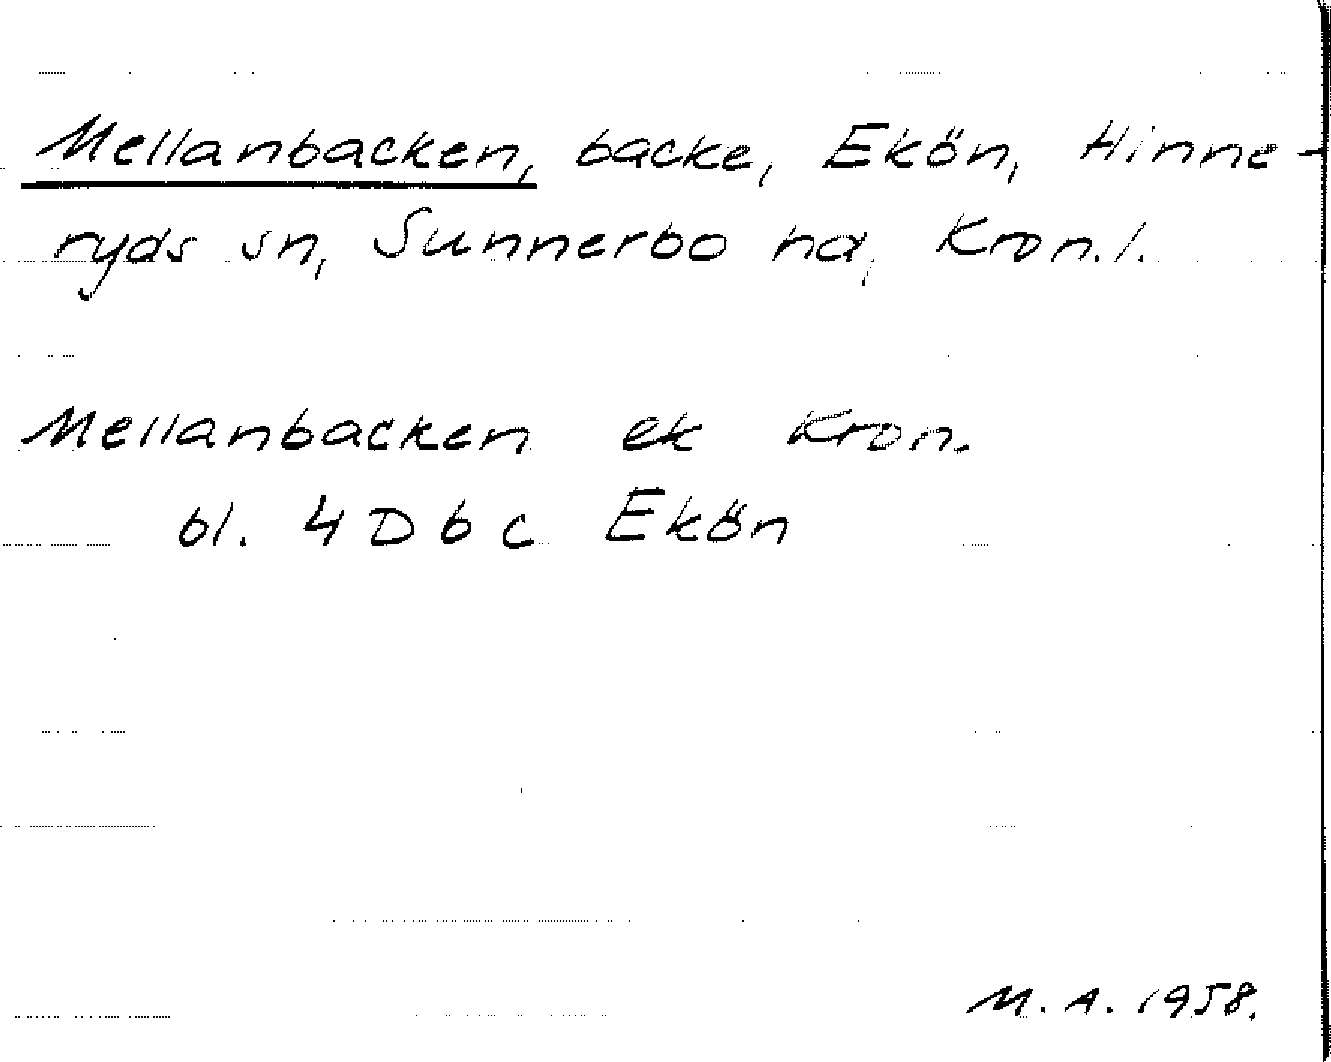 Mellanbacken, backe, Ekön, Hinne-
ryds sn, Sunnerbo hd, Kron.l.
Mellanbacken ek Kron.
bl. 4 D 6 c Ekön
M.A. 1958.